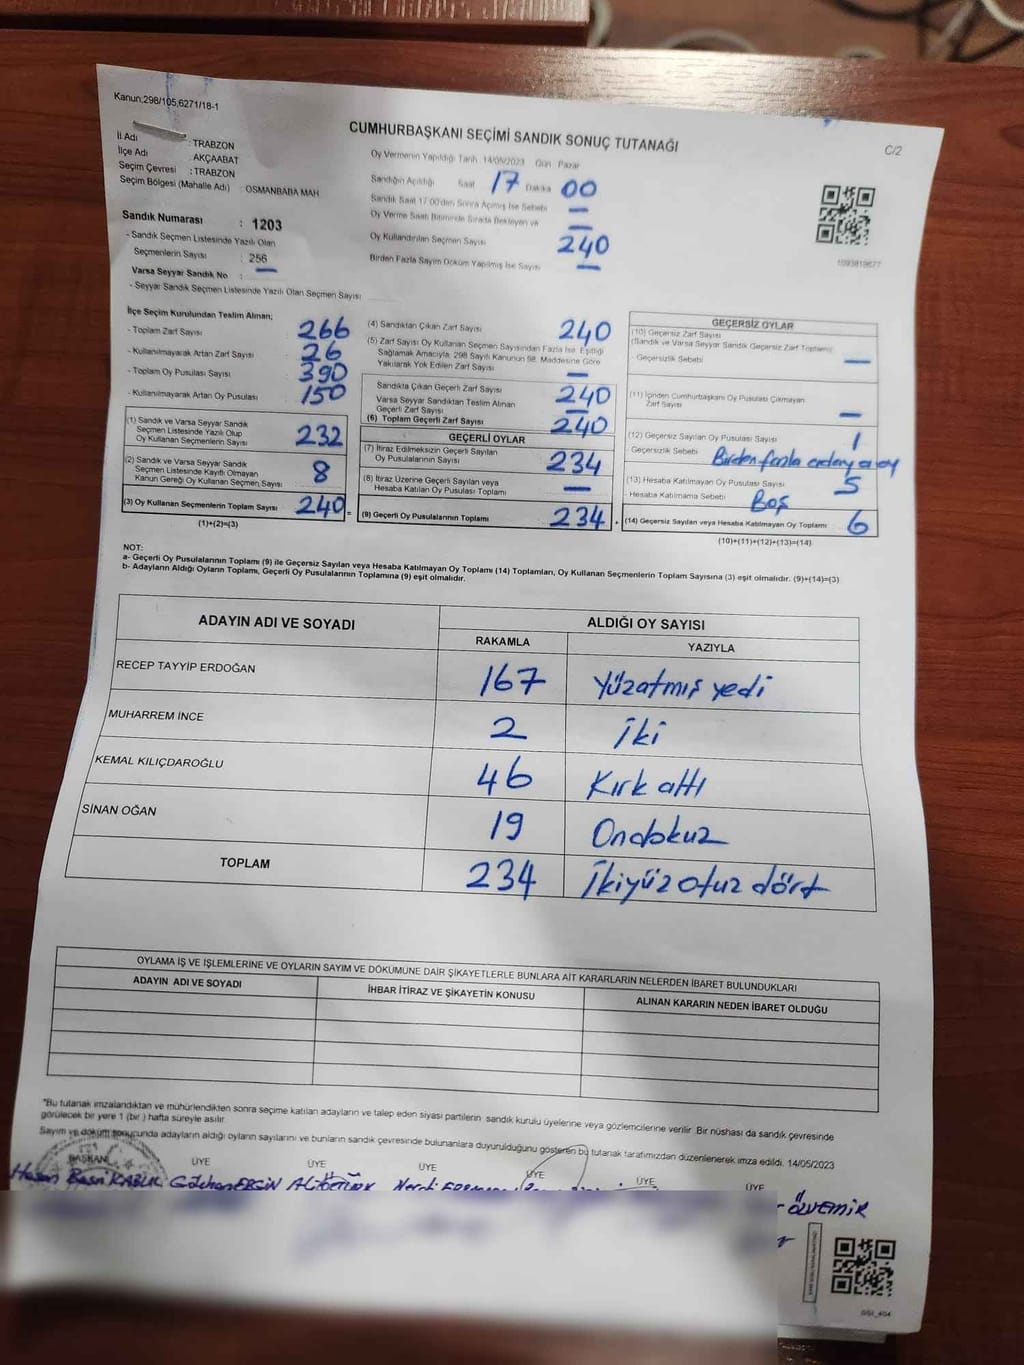 Kanun;298/105,6271/18-1
CUMHURBAŞKANI SEÇİMİ SANDIK SONUÇ TUTANAĞI
C/2
İl Adı : TRABZON
İlçe Adı : AKÇAABAT
Seçim Çevresi : TRABZON
Seçim Bölgesi (Mahalle Adı) : OSMANBABA MAH
Oy Vermenin Yapıldığı Tarih 14/05/2023 Gün Pazar
Sandığın Açıldığı Saat 17 Dakika 00
Sandık Saat 17:00'den Sonra Açılmış İse Sebebi —
Oy Verme Saati Bitiminde Sırada Bekleyen ve
Oy Kullandırılan Seçmen Sayısı —
240
Birden Fazla Sayım Döküm Yapılmış İse Sayısı —
1593819677
Sandık Numarası : 1203
- Sandık Seçmen Listesinde Yazılı Olan
Seçmenlerin Sayısı : 256
Varsa Seyyar Sandık No : —
- Seyyar Sandık Seçmen Listesinde Yazılı Olan Seçmen Sayısı
İlçe Seçim Kurulundan Teslim Alınan;
- Toplam Zarf Sayısı : 266
- Kullanılmayarak Artan Zarf Sayısı : 26
- Toplam Oy Pusulası Sayısı : 390
- Kullanılmayarak Artan Oy Pusulası : 150
(1) Sandık ve Varsa Seyyar Sandık
Seçmen Listesinde Yazılı Olup
Oy Kullanan Seçmenlerin Sayısı : 232
(2) Sandık ve Varsa Seyyar Sandık
Seçmen Listesinde Kayıtlı Olmayan
Kanun Gereği Oy Kullanan Seçmen Sayısı : 8
(3) Oy Kullanan Seçmenlerin Toplam Sayısı : 240 =
(1)+(2)=(3)
(4) Sandıktan Çıkan Zarf Sayısı 240
(5) Zarf Sayısı Oy Kullanan Seçmen Sayısından Fazla İse, Eşitliği
Sağlamak Amacıyla, 298 Sayılı Kanunun 98. Maddesine Göre
Yakılarak Yok Edilen Zarf Sayısı —
Sandıkta Çıkan Geçerli Zarf Sayısı 240
Varsa Seyyar Sandıktan Teslim Alınan
Geçerli Zarf Sayısı —
(6) Toplam Geçerli Zarf Sayısı 240
GEÇERLİ OYLAR
(7) İtiraz Edilmeksizin Geçerli Sayılan
Oy Pusulalarının Sayısı 234
(8) İtiraz Üzerine Geçerli Sayılan veya
Hesaba Katılan Oy Pusulası Toplamı —
(9) Geçerli Oy Pusulalarının Toplamı 234 +
GEÇERSİZ OYLAR
(10) Geçersiz Zarf Sayısı
(Sandık ve Varsa Seyyar Sandık Geçersiz Zarf Toplamı)
- Geçersizlik Sebebi —
(11) İçinden Cumhurbaşkanı Oy Pusulası Çıkmayan
Zarf Sayısı —
(12) Geçersiz Sayılan Oy Pusulası Sayısı 1
Geçersizlik Sebebi Birden fazla adaya oy
(13) Hesaba Katılmayan Oy Pusulası Sayısı 5
Hesaba Katılmama Sebebi Boş
(14) Geçersiz Sayılan veya Hesaba Katılmayan Oy Toplamı 6
(10)+(11)+(12)+(13)=(14)
NOT:
a- Geçerli Oy Pusulalarının Toplamı (9) ile Geçersiz Sayılan veya Hesaba Katılmayan Oy Toplamı (14) Toplamları, Oy Kullanan Seçmenlerin Toplam Sayısına (3) eşit olmalıdır. (9)+(14)=(3)
b- Adayların Aldığı Oyların Toplamı, Geçerli Oy Pusulalarının Toplamına (9) eşit olmalıdır.
ADAYIN ADI VE SOYADI
ALDIĞI OY SAYISI
RAKAMLA YAZIYLA
RECEP TAYYİP ERDOĞAN 167 Yüzatmış yedi
MUHARREM İNCE 2 İki
KEMAL KILIÇDAROĞLU 46 Kırk altı
SİNAN OĞAN 19 Ondokuz
TOPLAM 234 İkiyüz otuz dört
OYLAMA İŞ VE İŞLEMLERİNE VE OYLARIN SAYIM VE DÖKÜMÜNE DAİR ŞİKAYETLERLE BUNLARA AİT KARARLARIN NELERDEN İBARET BULUNDUKLARI
ADAYIN ADI VE SOYADI İHBAR İTİRAZ VE ŞİKAYETİN KONUSU ALINAN KARARIN NEDEN İBARET OLDUĞU
"Bu tutanak imzalandıktan ve mühürlendikten sonra seçime katılan adayların ve talep eden siyasi partilerin sandık kurulu üyelerine veya gözlemcilerine verilir. Bir nüshası da sandık çevresinde
görülecek bir yere 1 (bir ) hafta süreyle asılır.
Sayım ve döküm sonucunda adayların aldığı oyların sayılarını ve bunların sandık çevresinde bulunanlara duyurulduğunu gösteren bu tutanak tarafımızdan düzenlenerek imza edildi. 14/05/2023
BAŞKAN ÜYE ÜYE ÜYE ÜYE ÜYE ÜYE
Hasan Basri Gökhan ERGİN